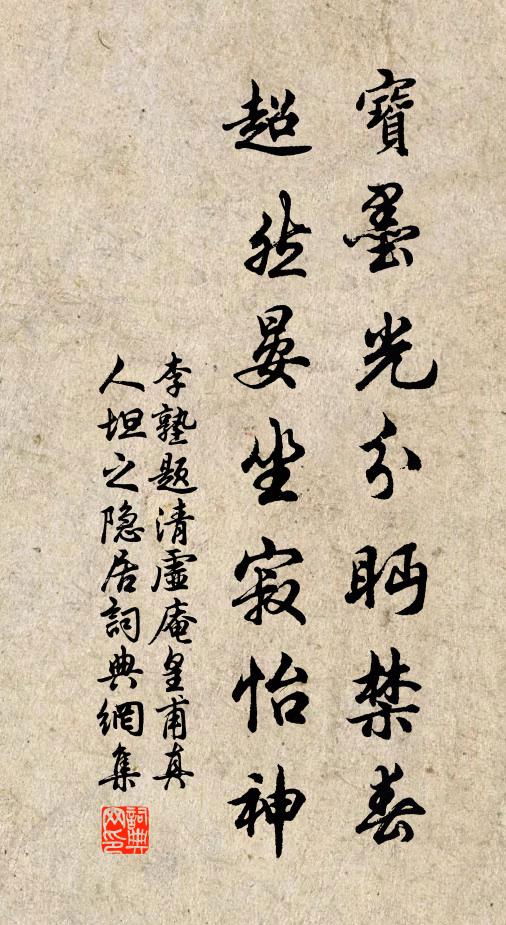 寶墨光分眄禁春
超然晏坐寂怡神
李塾題清虛庵皇甫真
人坦之隐居詞典網集
詞典
网印